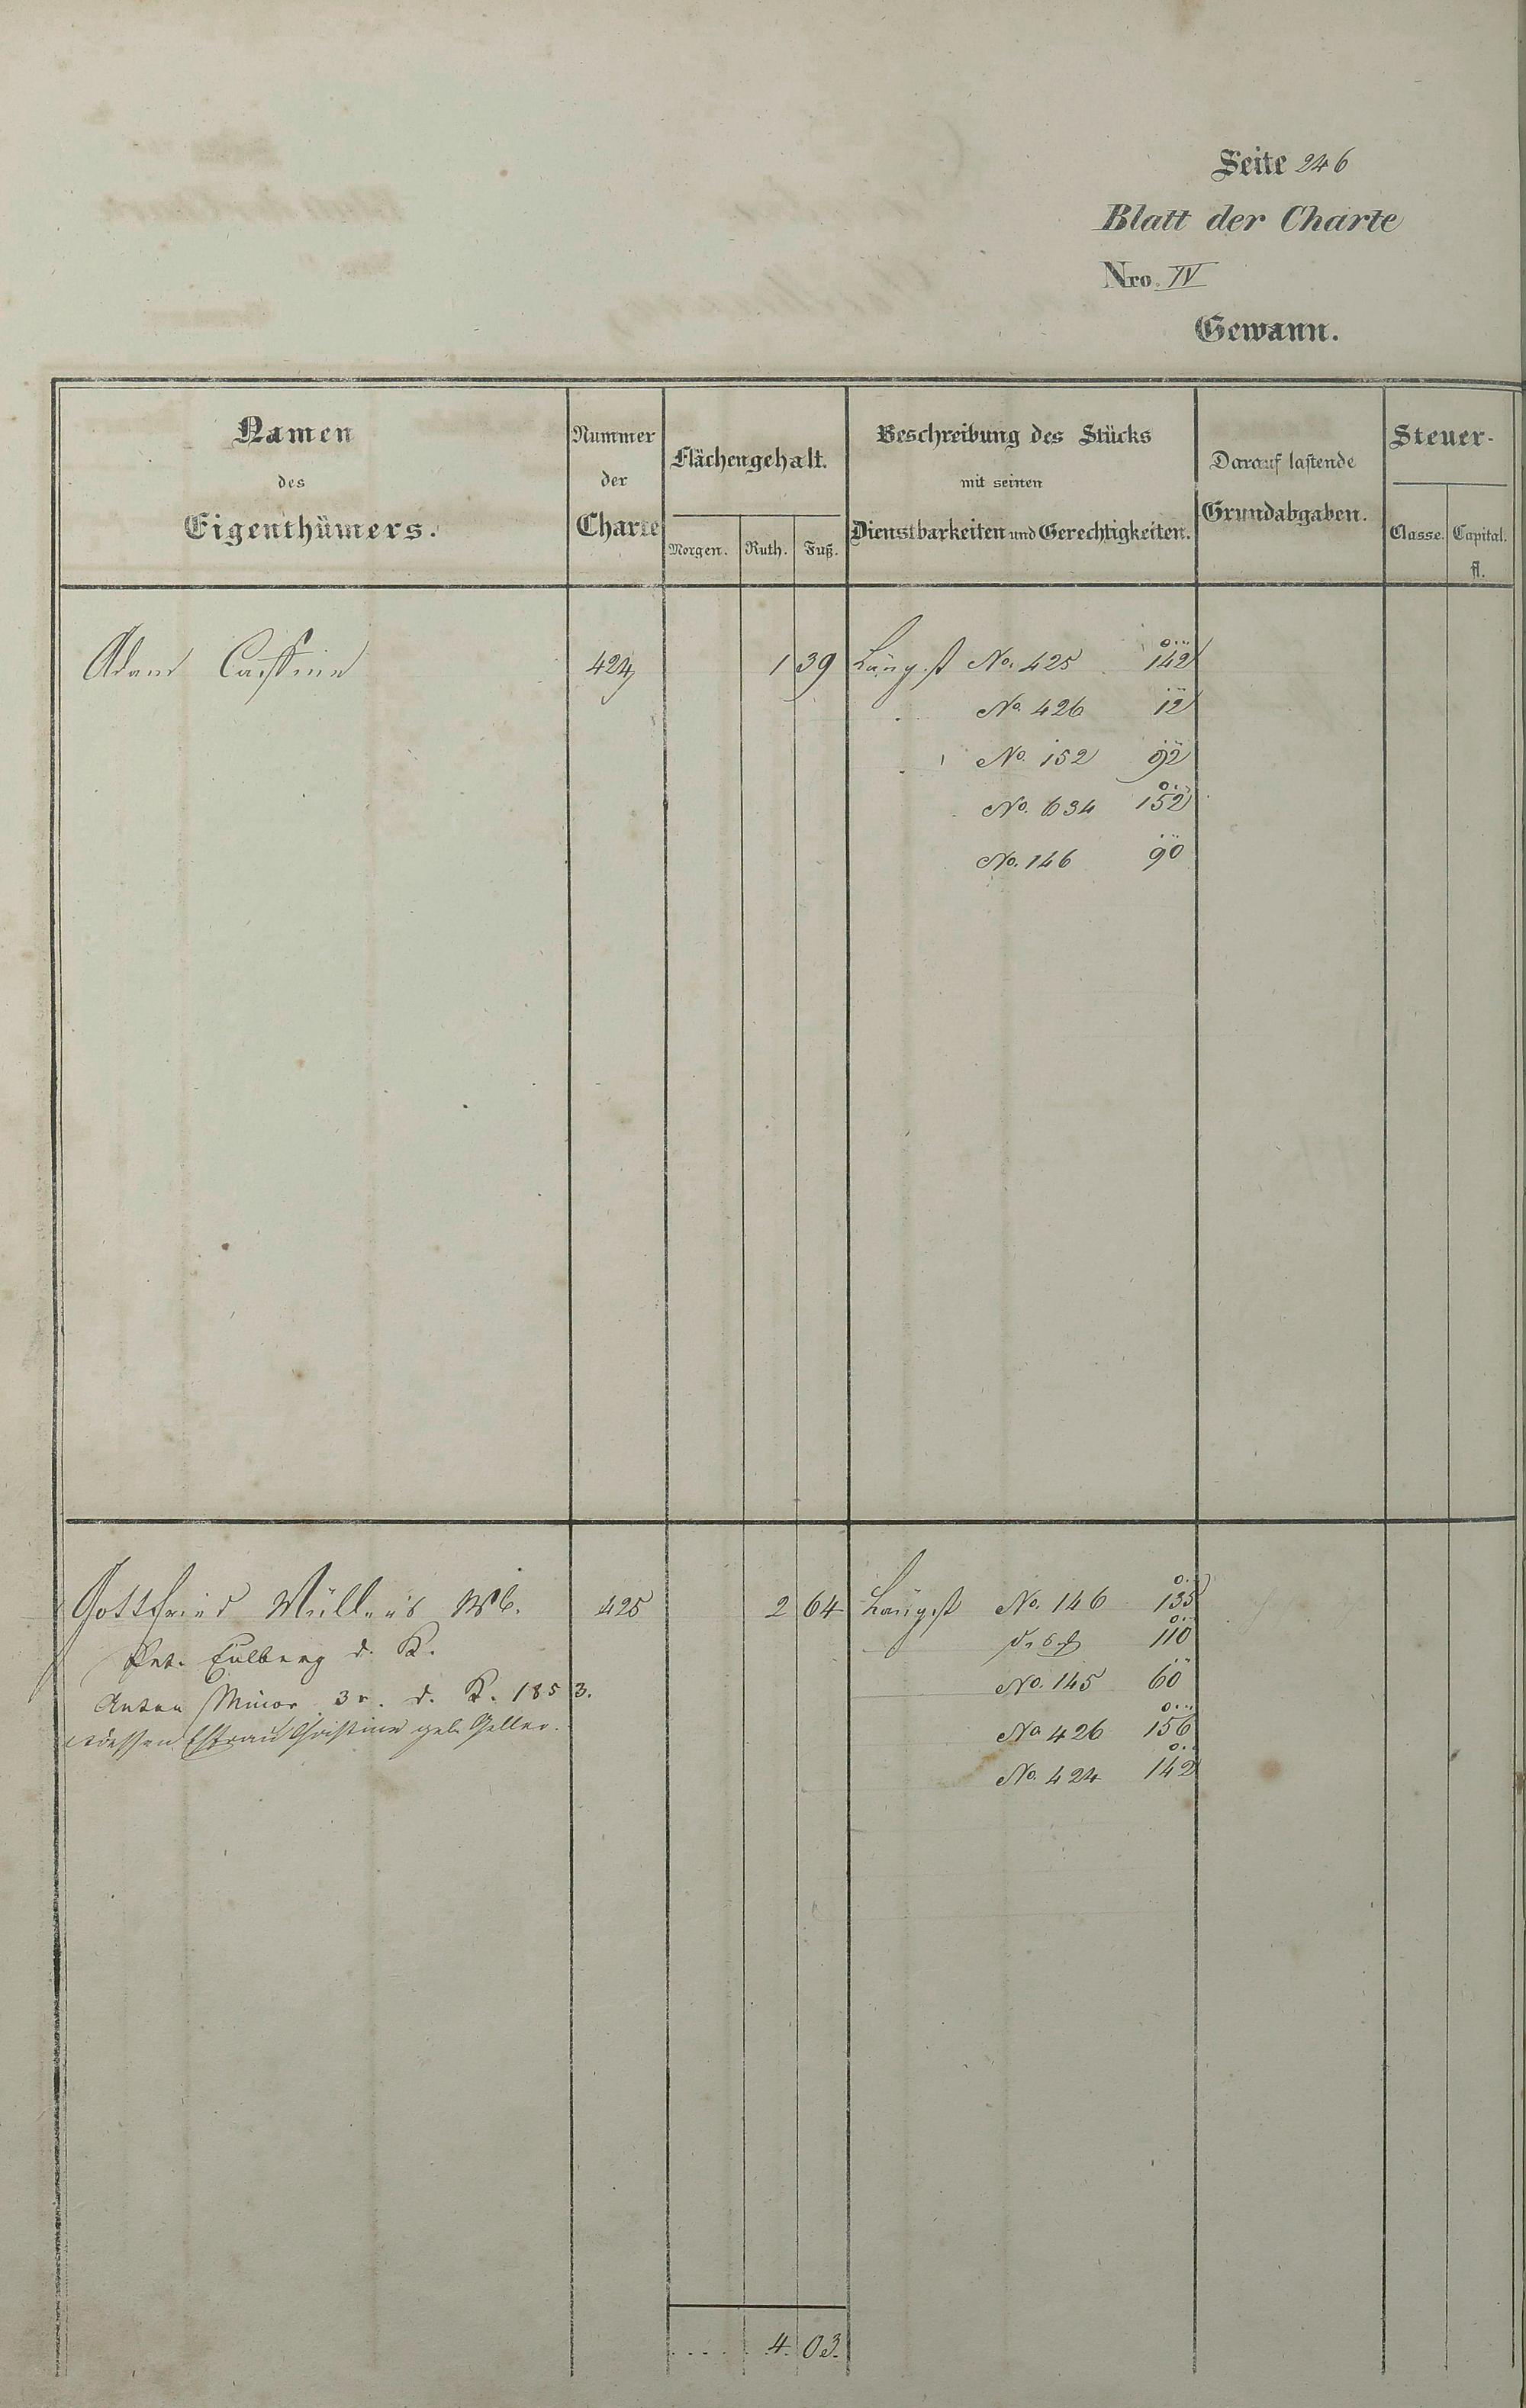 Seite 246
Blatt der Charte
Nro. IV
Gewann.
Namen des Eigenthümers.
Nummer der Charte
Flächengehalt.
Morgen. Ruth. Fuß.
Beschreibung des Stücks mit seinen Dienstbarkeiten und Gerechtigkeiten.
Darauf lastende Grundabgaben.
Steuer-
Classe. Capital. fl.
Adam 424 1 39 Längst No. 425 142
No. 426 12
No. 152 92
No. 634 152
No. 146 90
Gottfried Müller's Wb. 425 2 64 Längst No. 146 135
110
Pet. Eulberg d. K.
No. 145 60
Anton Minor 3r. d. K. 1853.
No 426 156
dessen Ehfrau Christine geb. Geller.
No. 424 142
4. 03.